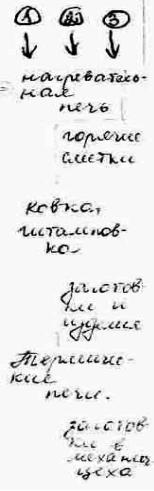 1 2 3
нагреватель-
ная
печь
горячие
слитки
ковка,
штампов-
ка
заготов-
ки и
изделие
Термиче-
ские
печи.
заготов-
ки в
механич
цеха